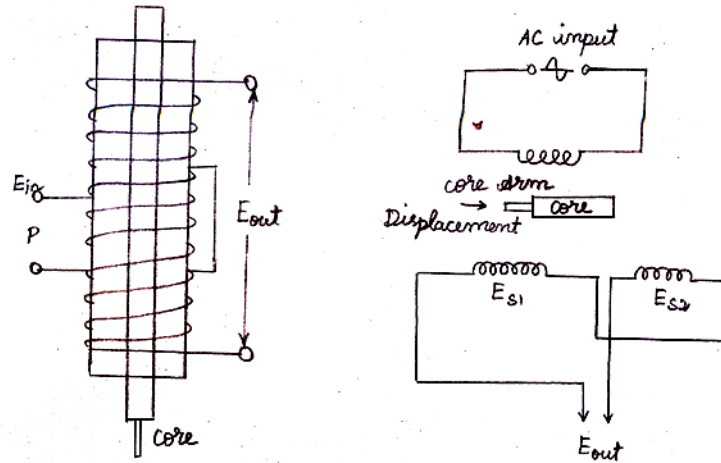 Ein
P
Eout
core
AC input
core Arm
Displacement
core
ES1
ES2
Eout